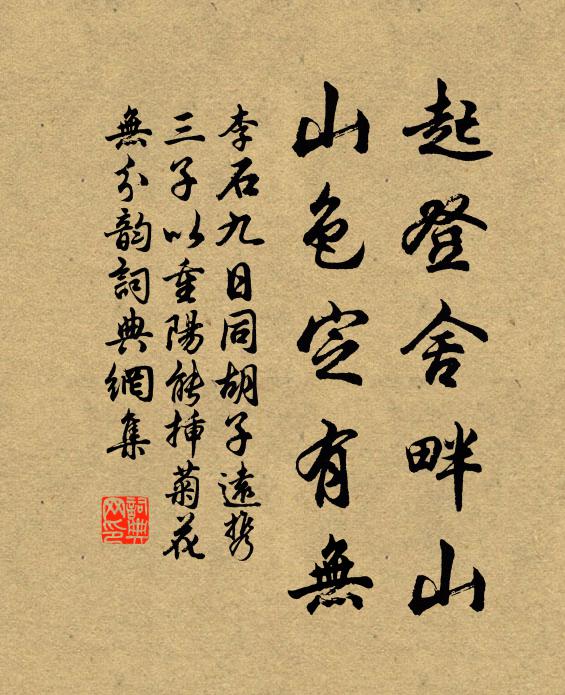 起登舍畔山
山色定有無
李石九日同胡子遠攜
三子以重陽能插菊花
無分韵詞典網集
詞典
网印